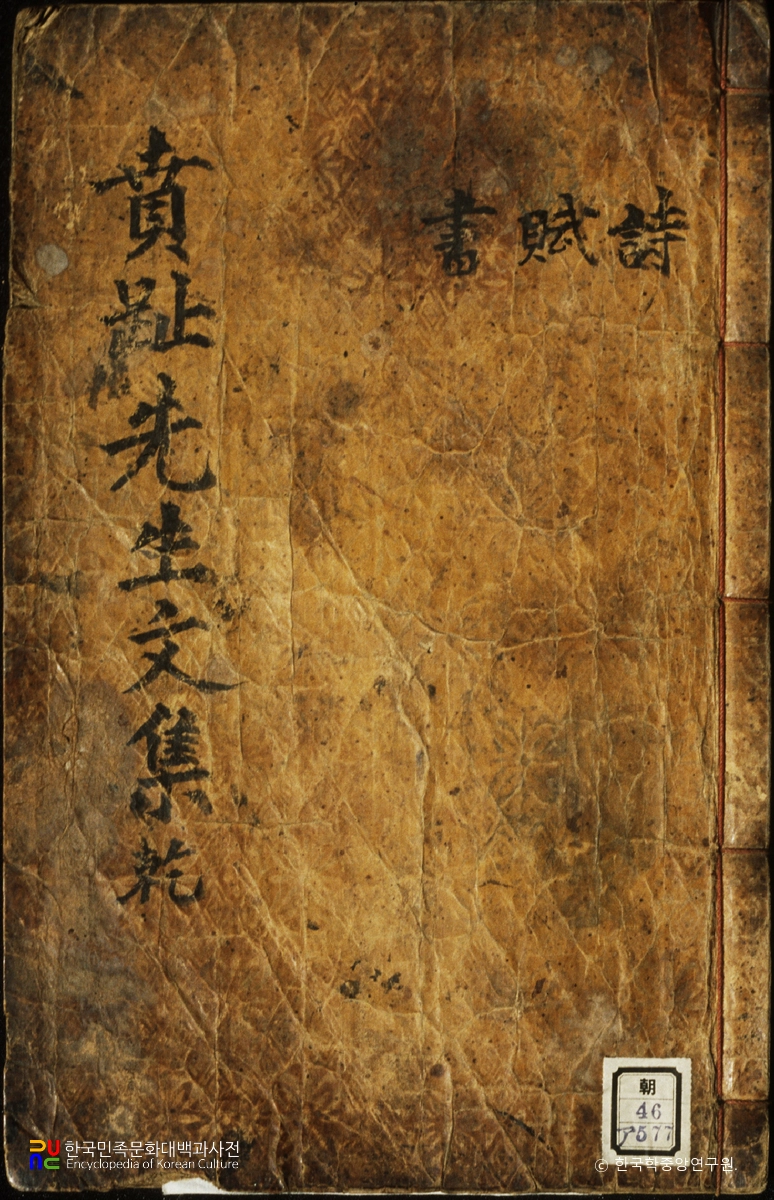 詩 賦 書
賁趾先生文集 乾
朝
46
ア577
한국민족문화대백과사전
Encyclopedia of Korean Culture
© 한국학중앙연구원.